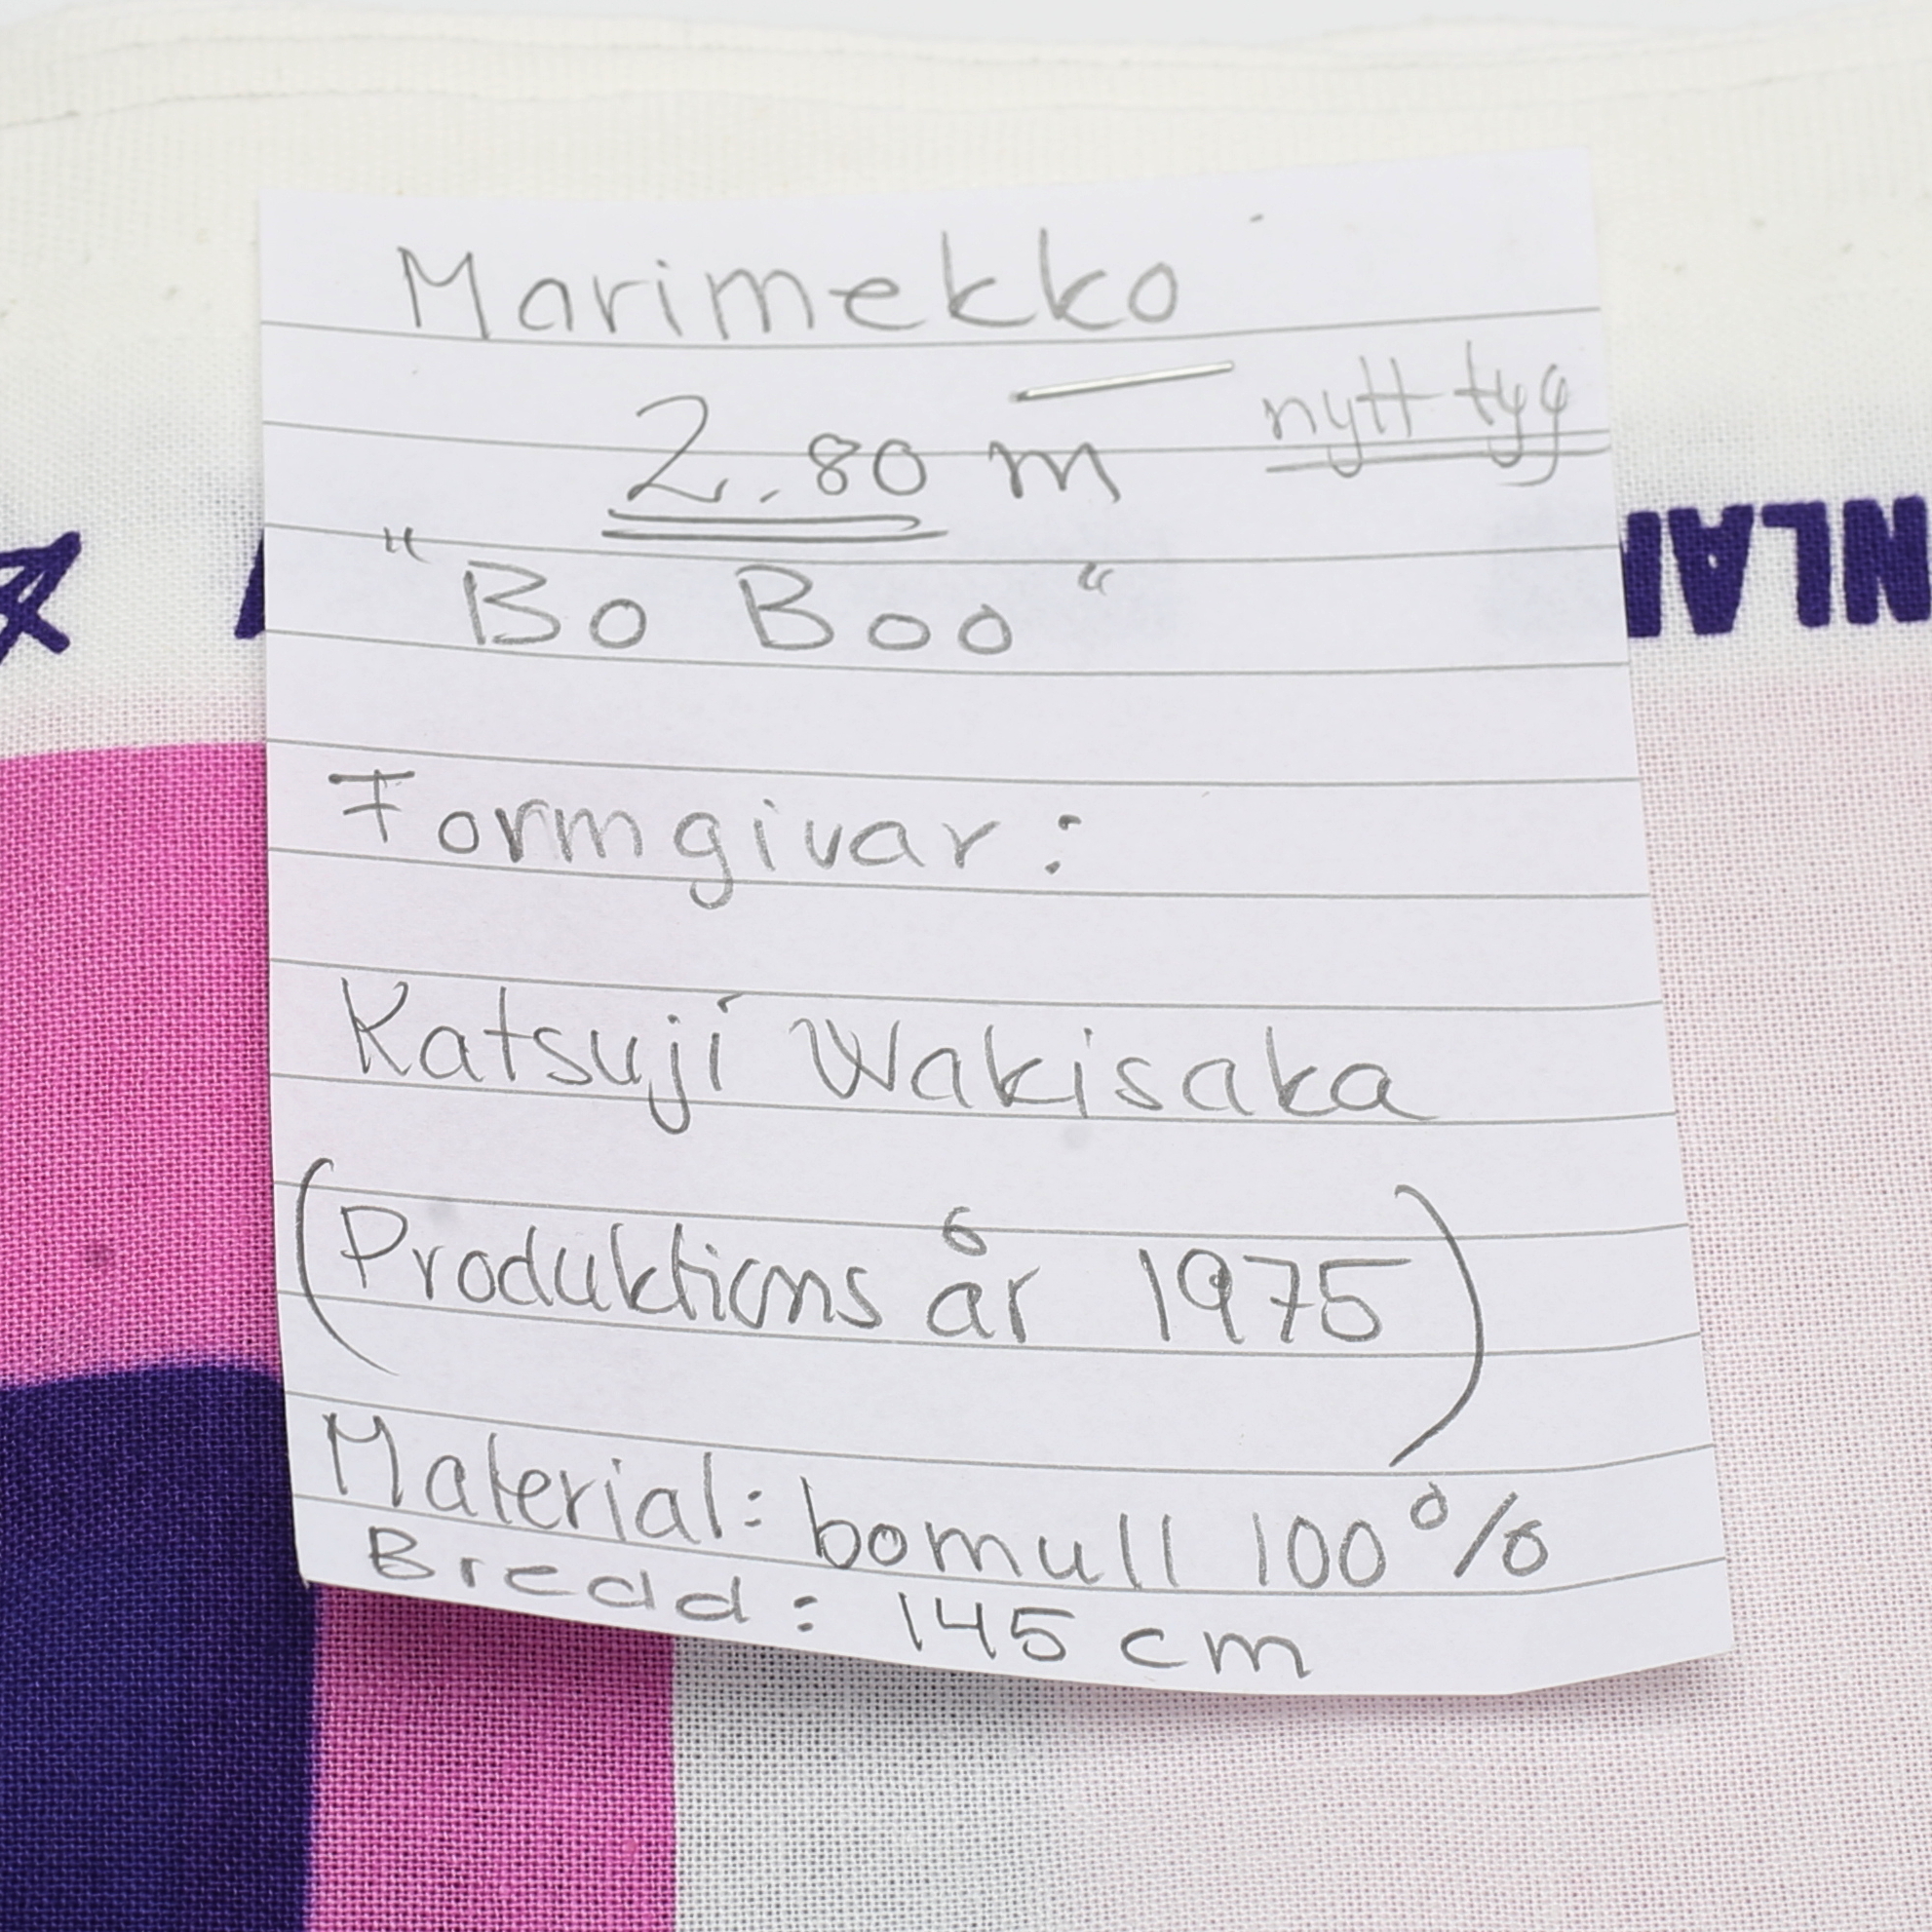 Marimekko
2.80 m nytt tyg
"Bo Boo"
Formgivar:
Katsuji Wakisaka
(Produktions år 1975)
Material: bomull 100%
Bredd: 145 cm
NLA